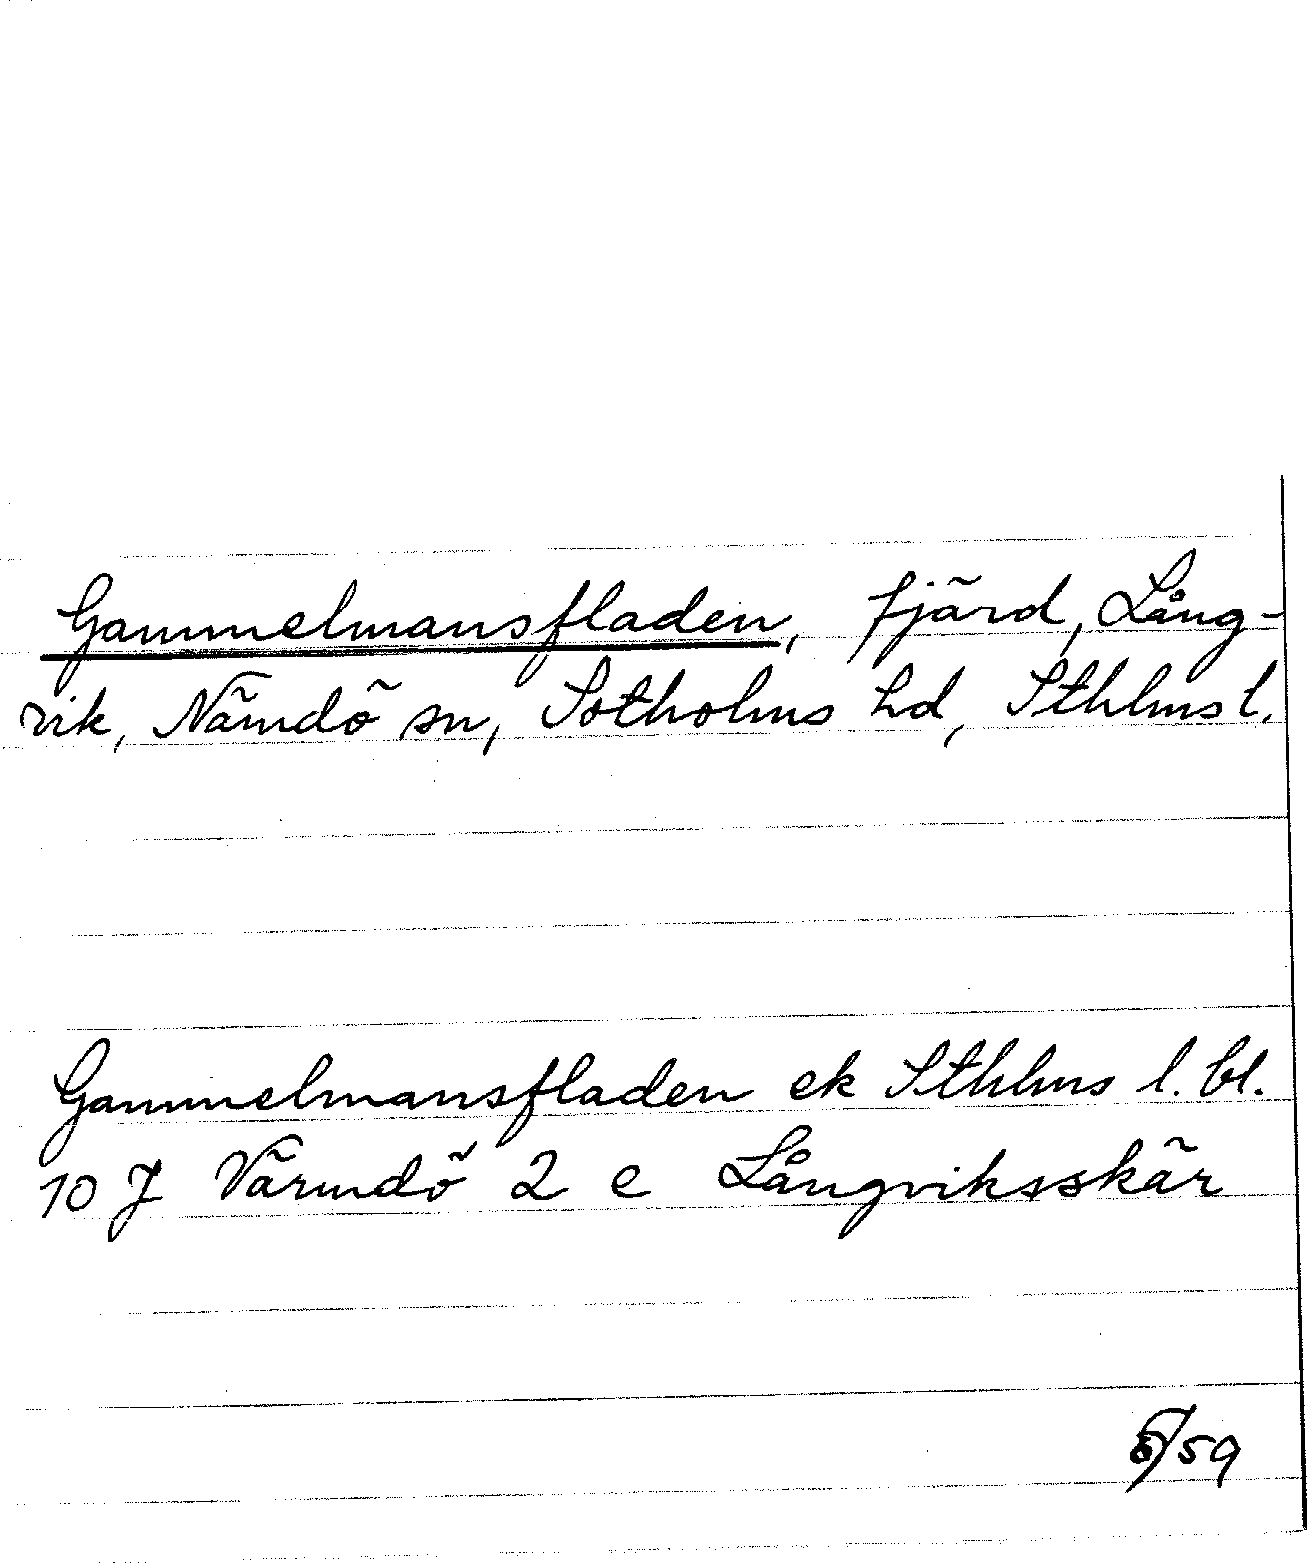 Gammelmansfladen, fjärd, Lång-
vik, Nämdö sn, Sotholms hd, Sthlms l.
Gammelmansfladen ek Sthlms l. bl.
10 J Värmdö 2 e Långviksskär
/59